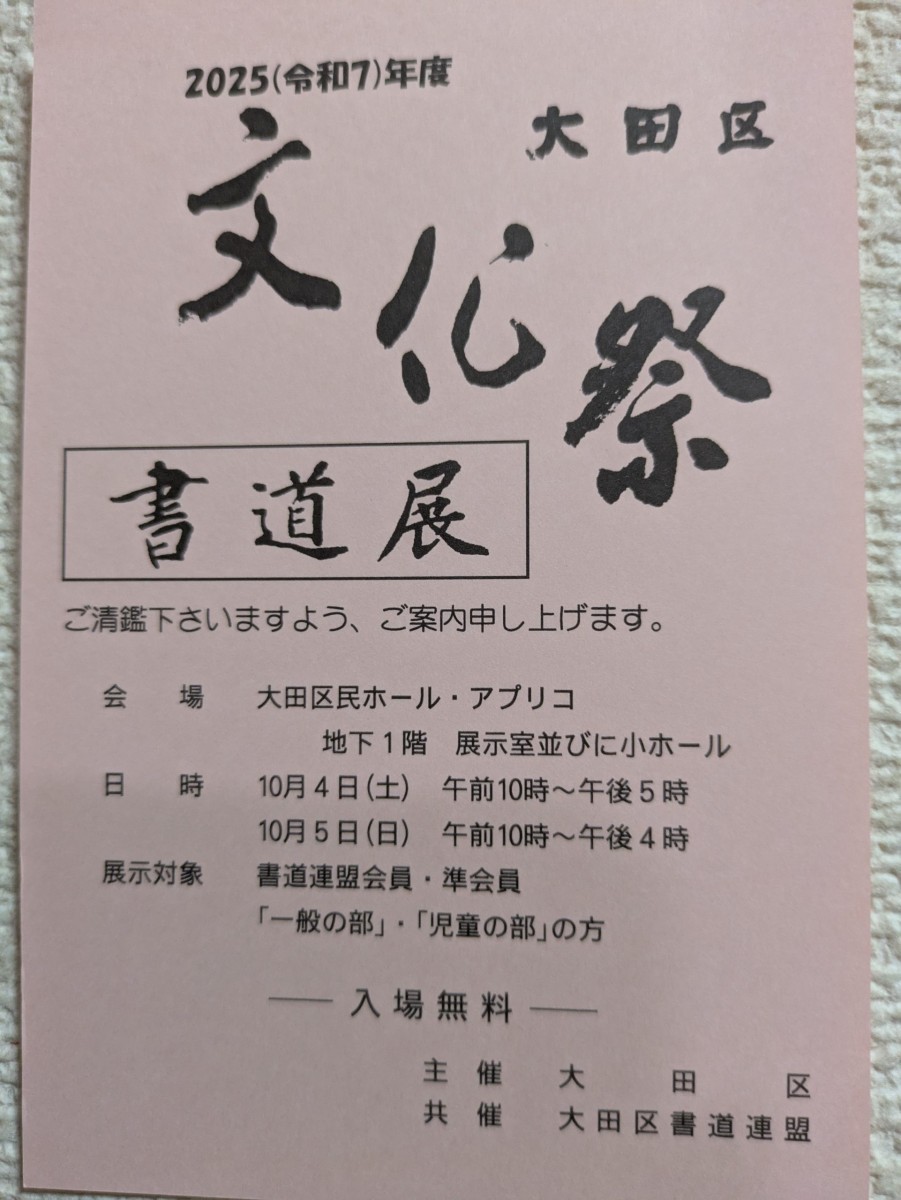 2025(令和7)年度
大田区
文化祭
書道展
ご清鑑下さいますよう、ご案内申し上げます。
会場 大田区民ホール・アプリコ
地下1階 展示室並びに小ホール
日時 10月4日(土) 午前10時〜午後5時
10月5日(日) 午前10時〜午後4時
展示対象 書道連盟会員・準会員
「一般の部」・「児童の部」の方
入場無料
主催 大田区
共催 大田区書道連盟